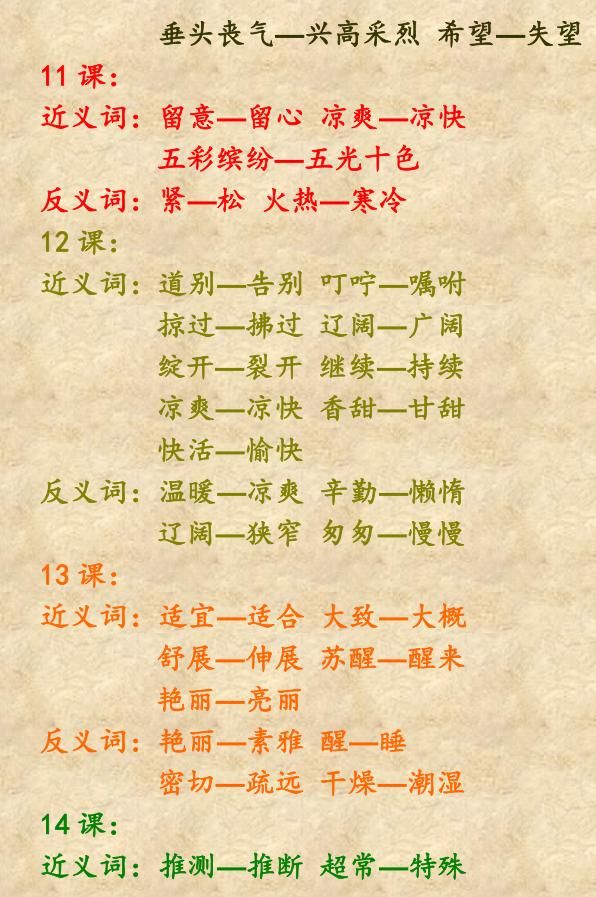 垂头丧气—兴高采烈 希望—失望
11 课：
近义词：留意—留心 凉爽—凉快
五彩缤纷—五光十色
反义词：紧—松 火热—寒冷
12 课：
近义词：道别—告别 叮咛—嘱咐
掠过—拂过 辽阔—广阔
绽开—裂开 继续—持续
凉爽—凉快 香甜—甘甜
快活—愉快
反义词：温暖—凉爽 辛勤—懒惰
辽阔—狭窄 匆匆—慢慢
13 课：
近义词：适宜—适合 大致—大概
舒展—伸展 苏醒—醒来
艳丽—亮丽
反义词：艳丽—素雅 醒—睡
密切—疏远 干燥—潮湿
14 课：
近义词：推测—推断 超常—特殊